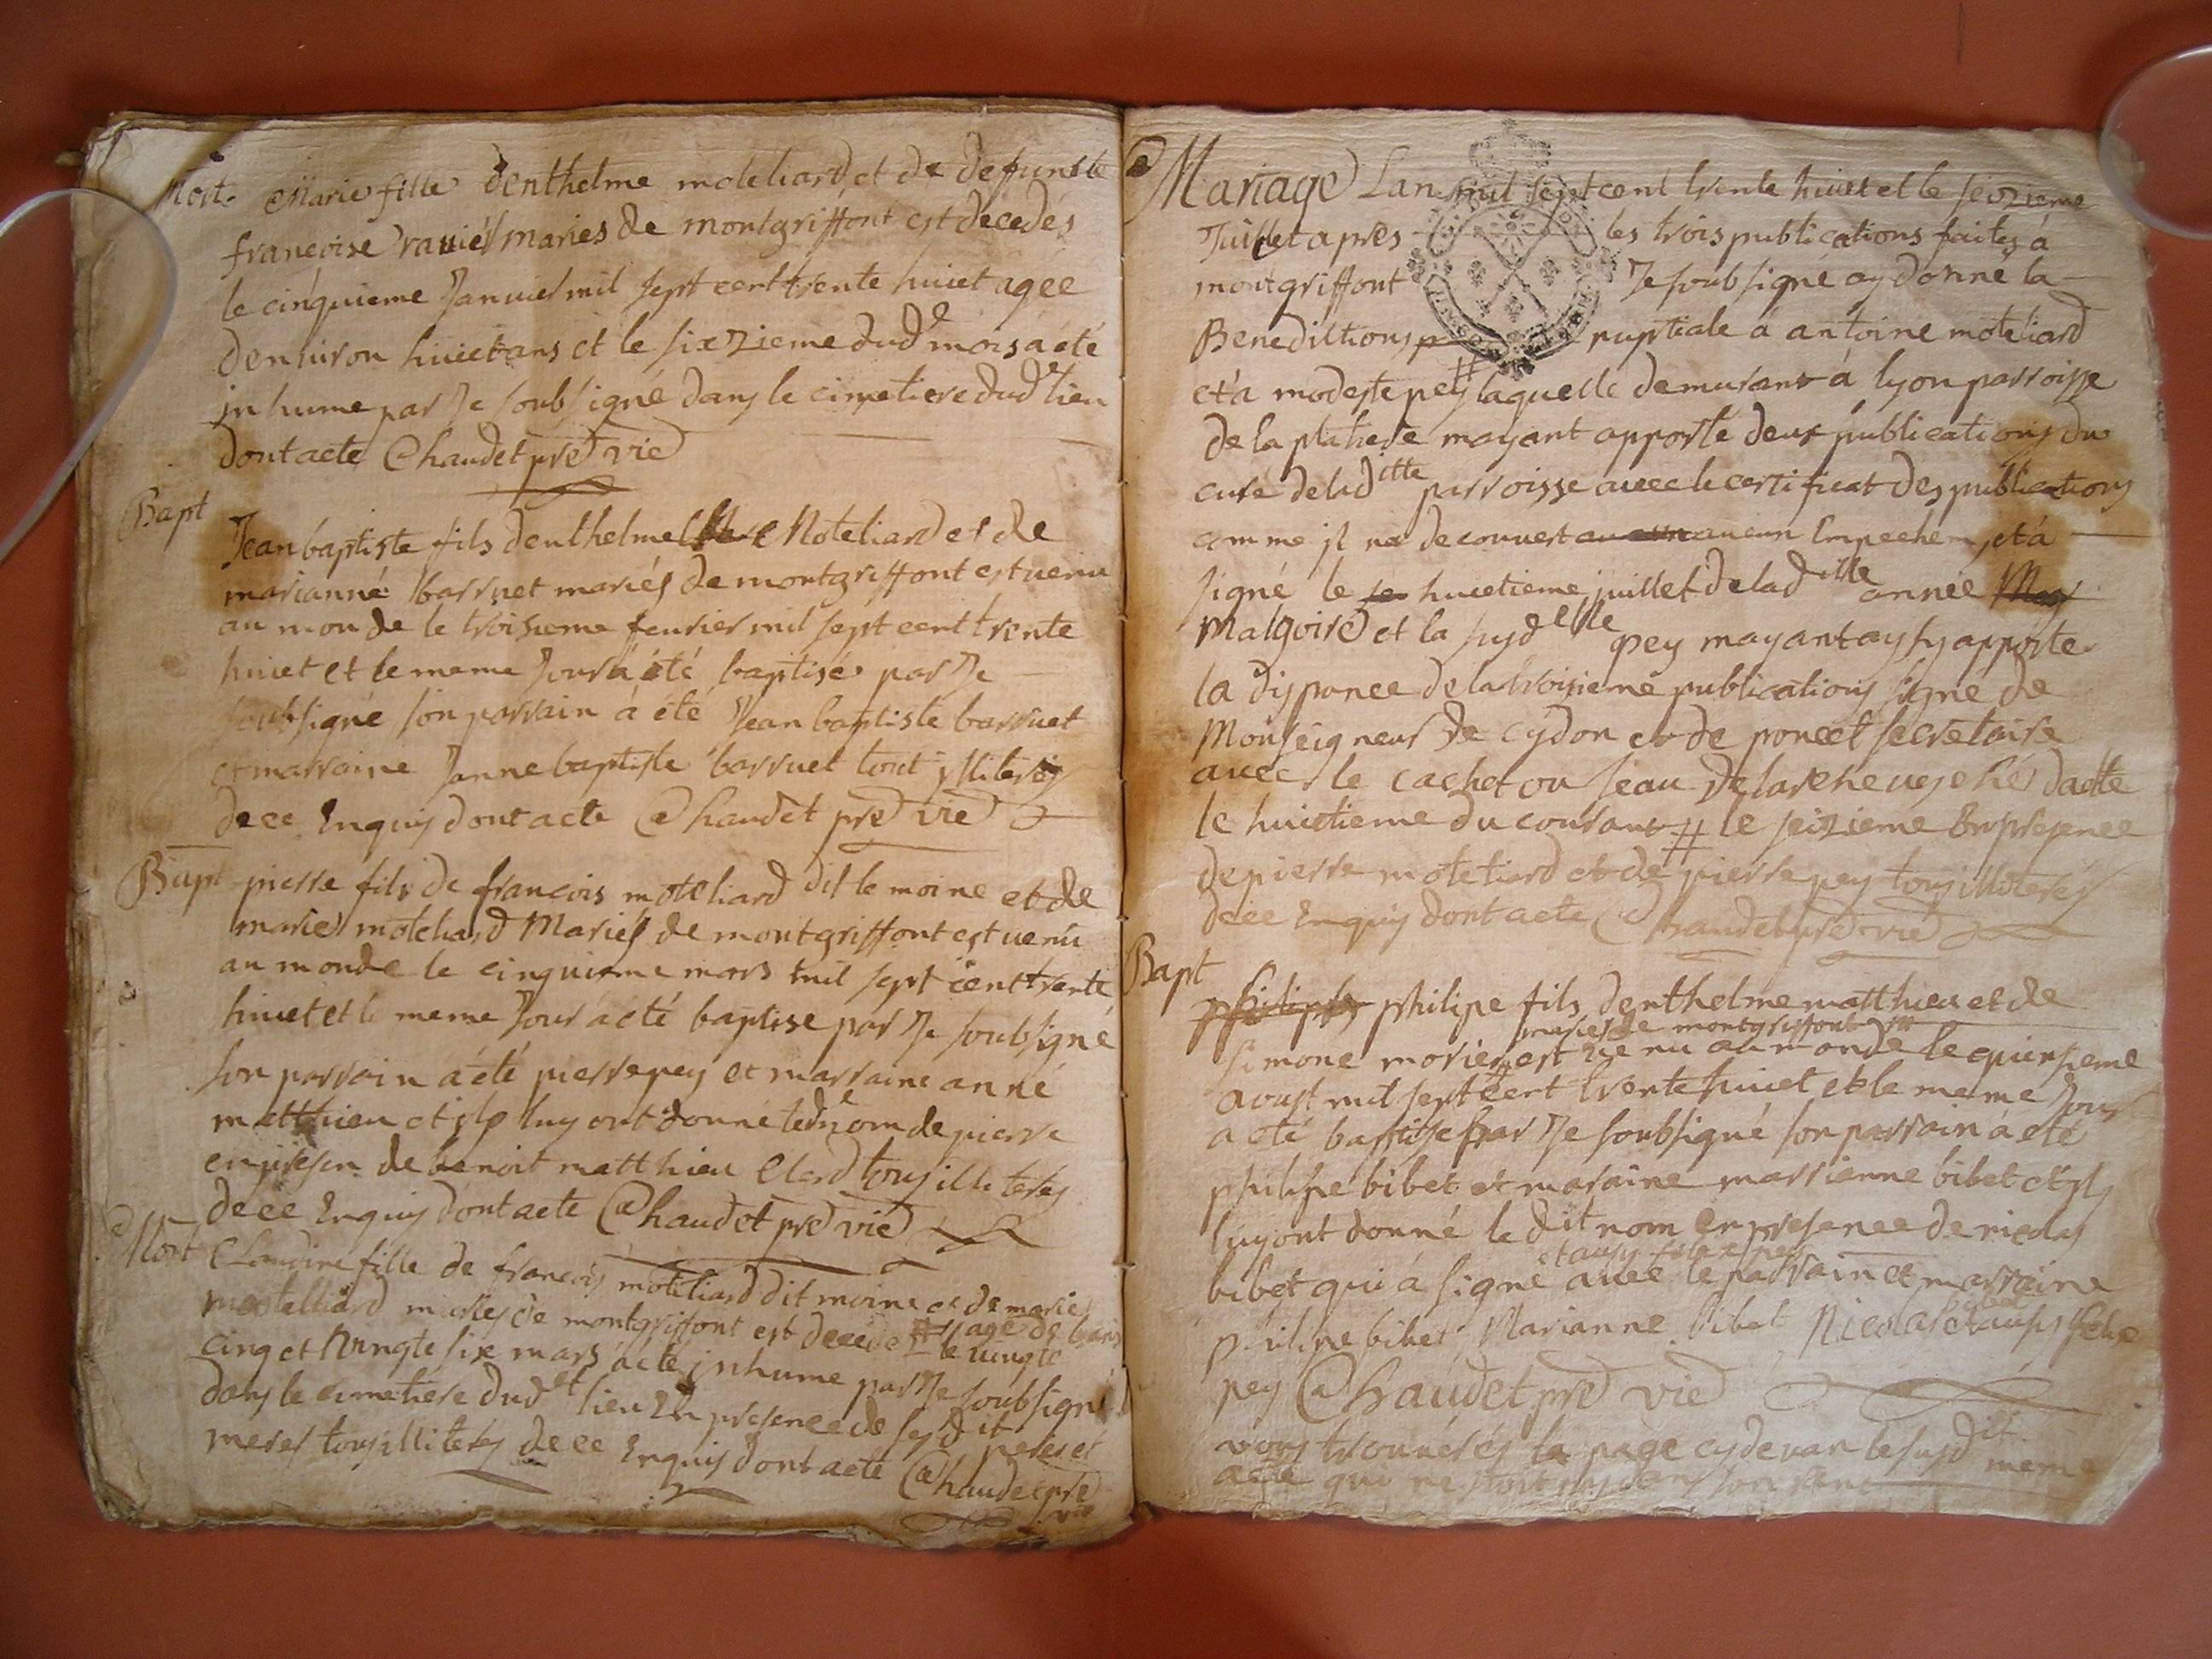 Mort. Marie fille denthelme moteliard et de defunste
francoise ravier mariés de montgriffont est decedés
le cinquieme Januier mil sept cent trente huict agée
denuiron huict ans et le sixzieme dude mois a été
inhume par Je soubsigné dans le cimetiere dudt lieu
dont acte Chaudet pre vic
Bapt
Jean baptiste fils denthelme Moteliard et de
marianne barruet mariés de montgriffont est uenu
au monde le troisieme feurier mil sept cent trente
huict et le meme Jour á été baptisé par Je
soubsigné son parrain á été Jean baptiste barruet
et marraine Janne baptiste barruet tout illiterés
de ce Enquis dont acte Chaudet pre vic
Bapt pierre fils de francois moteliard dit le moine et de
marie moteliard Mariés de montgriffont est uenu
au monde le cinquieme mars mil sept cent trente
huict et le meme Jour á été baptise par Je soubsigné
son parrain á été pierre pey et marraine anne
matthieu et ils luy ont donné led nom de pierre
en presen de benoit matthieu Clerd tous illiterés
de ce Enquis dont acte Chaudet pre vic
Mort Claudine fille de francois moteliard dit moine et de marie
moteliard mariés de montgriffont est decede # agé de
le uingte
cinq et uingte six mars á été inhume par Je soubsigné
dans le cimetiere dudet lieu En presence de ses dit peres et
meres tous illiterés de ce Enquis dont acte Chaudet pre
vic
Mariage Lan mil sept cent trente huict et le seizieme
Juillet apres les trois publications faites á
montgriffont Je soubsigné ay donné la
Benedictions nuptiale á antoine moteliard
et a modeste pey # laquelle demurant á lyon parroisse
de la platiere mayant apporte deux publications du
curé deladitte parroisse auec le certificat des publications
comme il na decouuert aucun Empechem, et á
signé le huictieme juillet deladitte année
Malgoire et la susdelle pey mayant aussy apporte
la dispance de la troisieme publications signé de
Monseigneur de cydon et de poncet secretaire
auec le cachet ou seau de larcheueché dacte
le huictieme du courant # le seizieme En presence
de pierre moteliard et de pierre pey tous illiterés
de ce Enquis dont acte Chaudet pre vic
Bapt
philipe philipe fils denthelme matthieu et de
mariés de montgriffont
simone morier est uenu au monde le quinsieme
aoust mil sept cent trente huict et le meme Jour
a été baptise par Je soubsigné son parrain á été
philipe bibet et maraine marrienne bibet et ils
luy ont donné le dit nom En presence de nicolas
et ausy felix pey
bibet qui á signé auec le parrain et marraine
philipe bibet Marianne bibet Nicolas bibet et ausy felix
pey Chaudet pre vic
vous trouueres la page cy deuan le susdit meme
acte qui ne